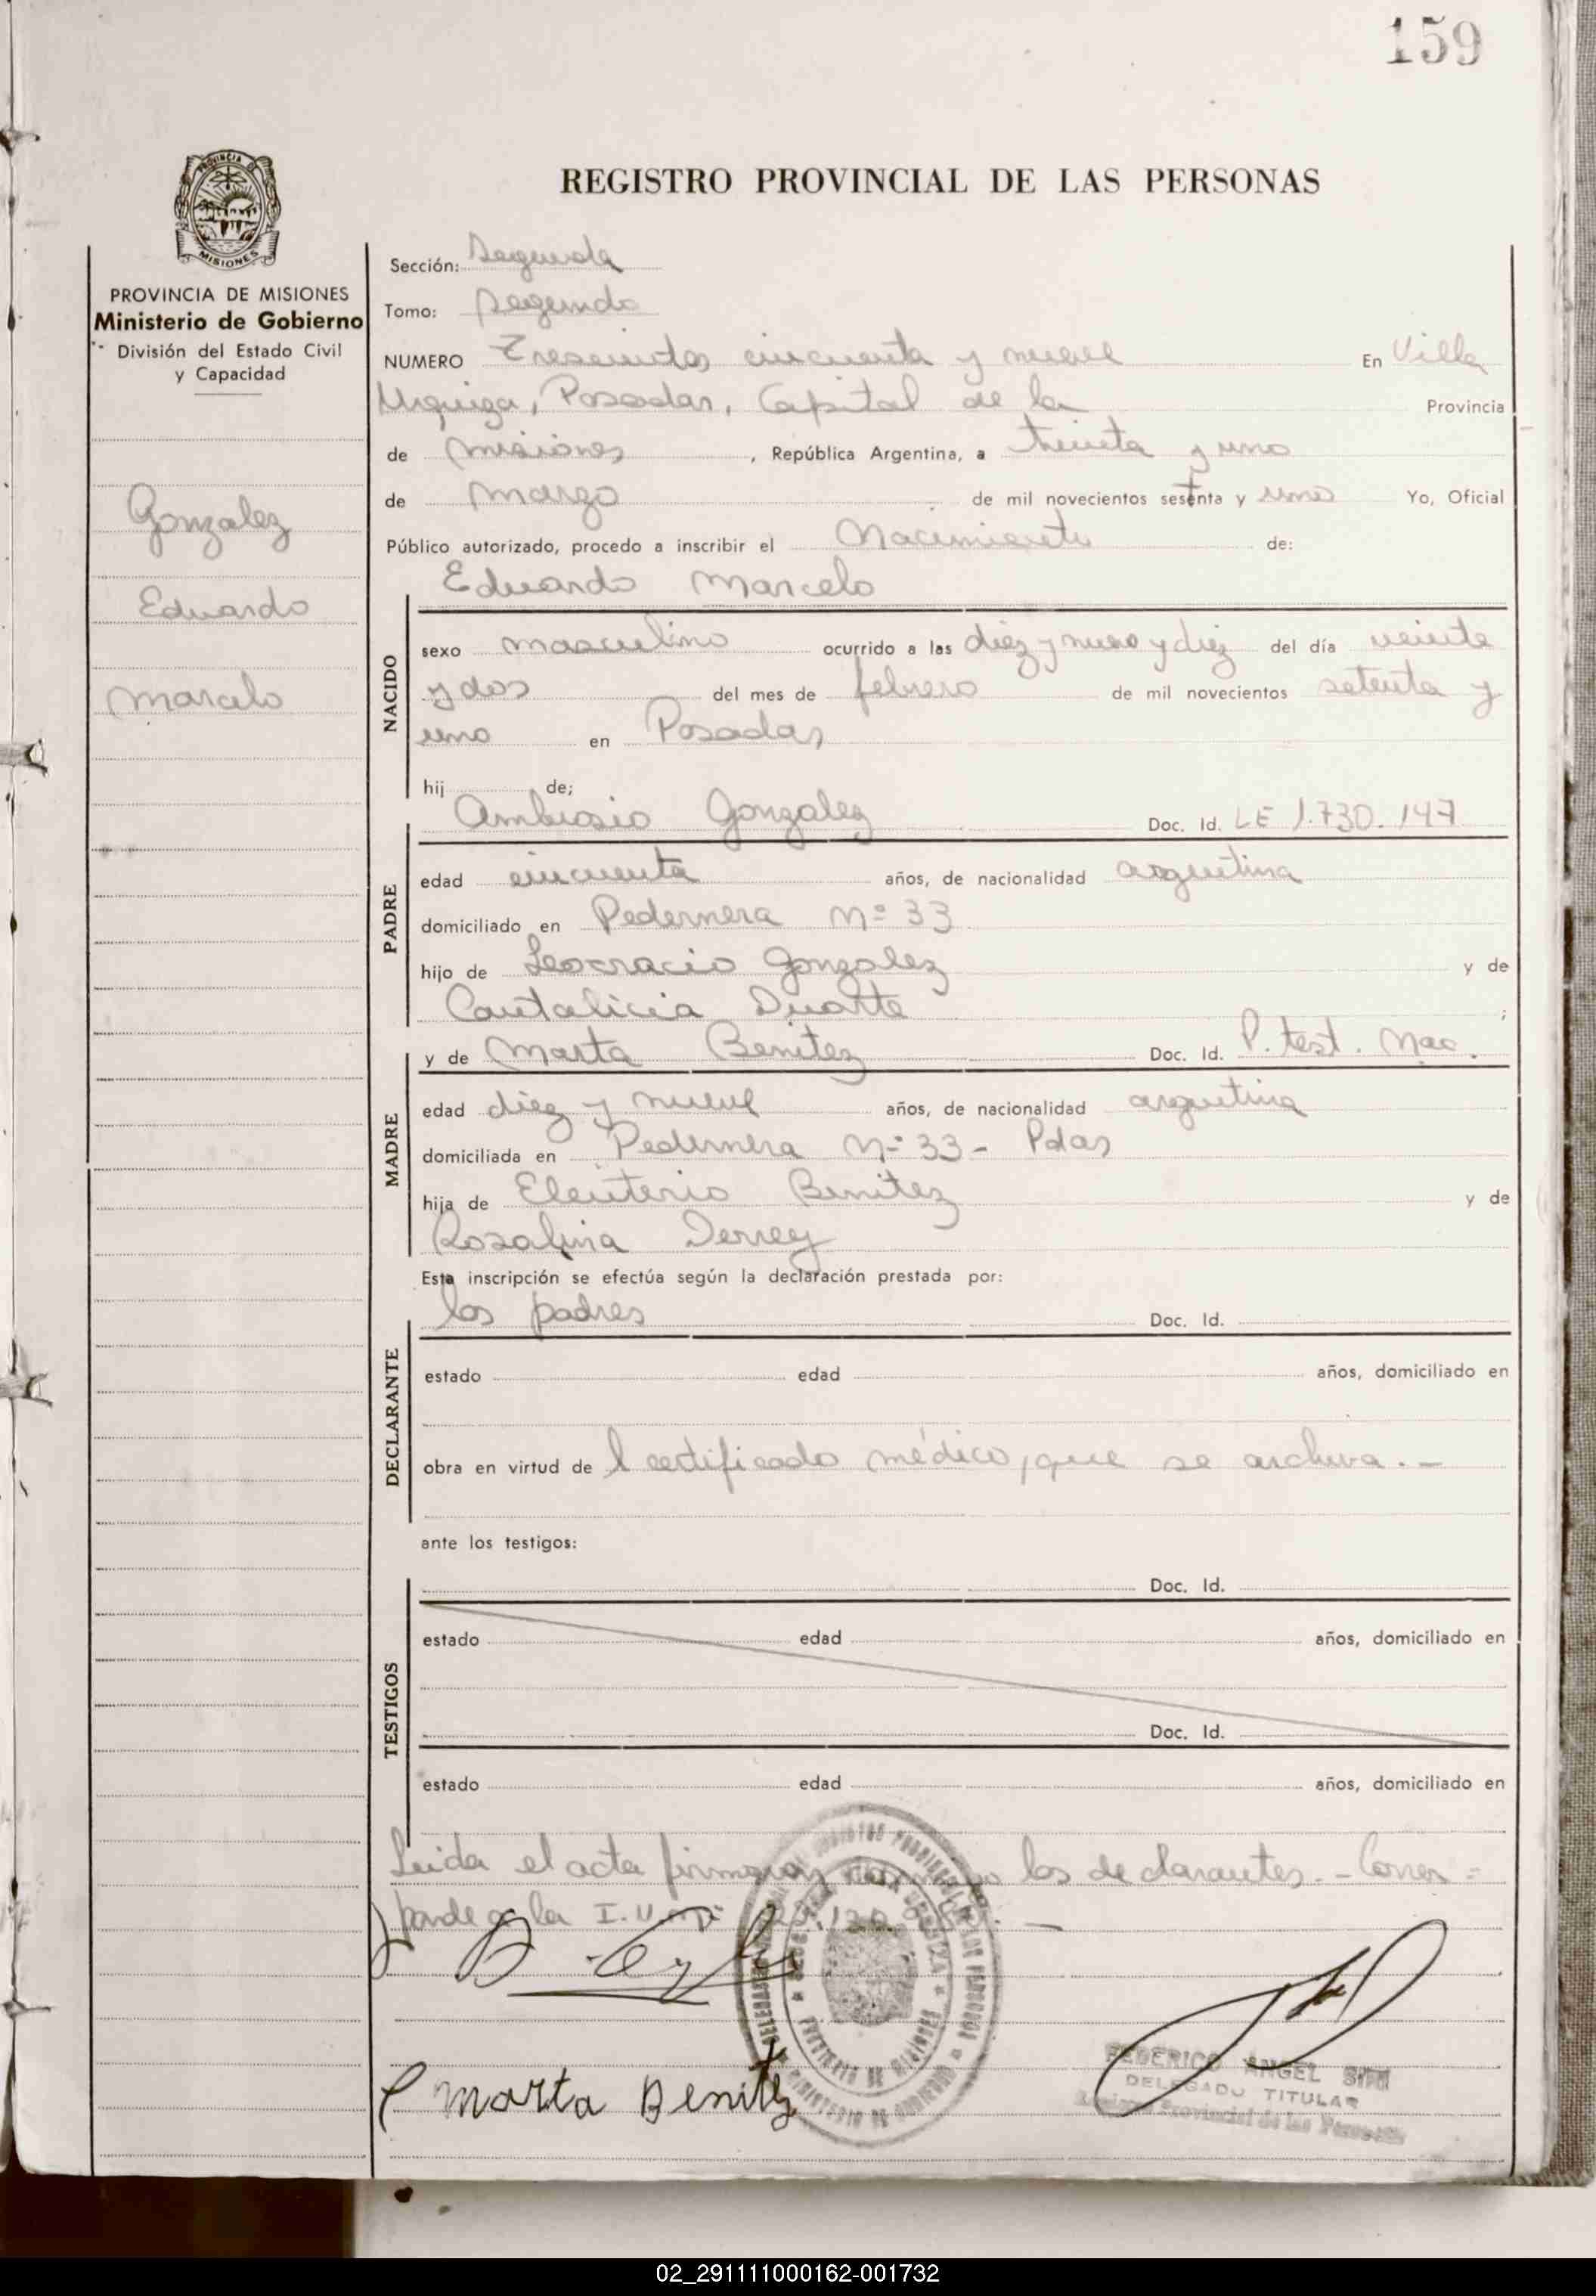 159
PROVINCIA DE
MISIONES
REGISTRO PROVINCIAL DE LAS PERSONAS
PROVINCIA DE MISIONES
Ministerio de Gobierno
División del Estado Civil
y Capacidad
Gonzalez
Eduardo
Marcelo
Sección: Segunda
Tomo: Segundo
NUMERO Trescientos cincuenta y nueve En Villa
Urquiza, Posadas, Capital de la Provincia
de Misiones, República Argentina, a treinta y uno
de Marzo de mil novecientos setenta y uno Yo, Oficial
Público autorizado, procedo a inscribir el Nacimiento de:
Eduardo Marcelo
NACIDO
sexo masculino ocurrido a las diez y nueve y diez del día veinte
y dos del mes de febrero de mil novecientos setenta y
uno en Posadas
hij de;
Ambrosio Gonzalez Doc. Id. LE 1.730.147
PADRE
edad cincuenta años, de nacionalidad argentina
domiciliado en Pedernera Nº 33
hijo de Leocracio Gonzalez y de
Cantalicia Duarte ;
y de Marta Benitez Doc. Id. P. test. Nac.
MADRE
edad diez y nueve años, de nacionalidad argentina
domiciliada en Pedernera Nº 33 - Pdas
hija de Eleuterio Benitez y de
Rosalina
Esta inscripción se efectúa según la declaración prestada por:
los padres Doc. Id.
DECLARANTE
estado edad años, domiciliado en
obra en virtud de l certificado médico, que se archiva.-
ante los testigos:
Doc. Id.
TESTIGOS
estado edad años, domiciliado en
Doc. Id.
estado edad años, domiciliado en
Leida el acta firman conmigo los declarantes.- Corres=
ponde a la I.U.
Marta Benitez
FEDERICO ANGEL
DELEGADO TITULAR
Registro Provincial de las Personas
02_291111000162-001732